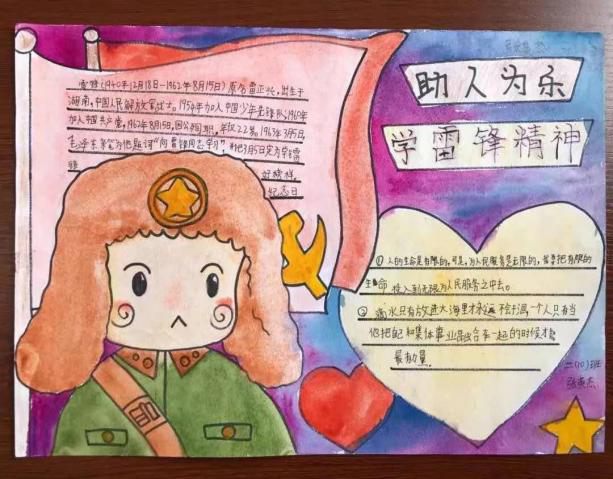 助人为乐
学雷锋精神
雷锋(1940年12月18日-1962年8月15日)原名雷正兴,出生于
湖南,中国人民解放军战士。1954年加入中国少年先锋队,1960年
加入中国共产党,1962年8月15日,因公殉职,年仅22岁。1963年3月5日,
毛泽东亲笔为他题词“向雷锋同志学习”,并把3月5日定为学雷
锋
好榜样。
纪念日
① 人的生命是有限的,可是,为人民服务是无限的,我要把有限的
生命 投入到无限为人民服务之中去。
② 滴水只有放进大海里才永远不会干涸,一个人只有当
他把自己和集体事业融合在一起的时候才能
最有力量.
二(10)班